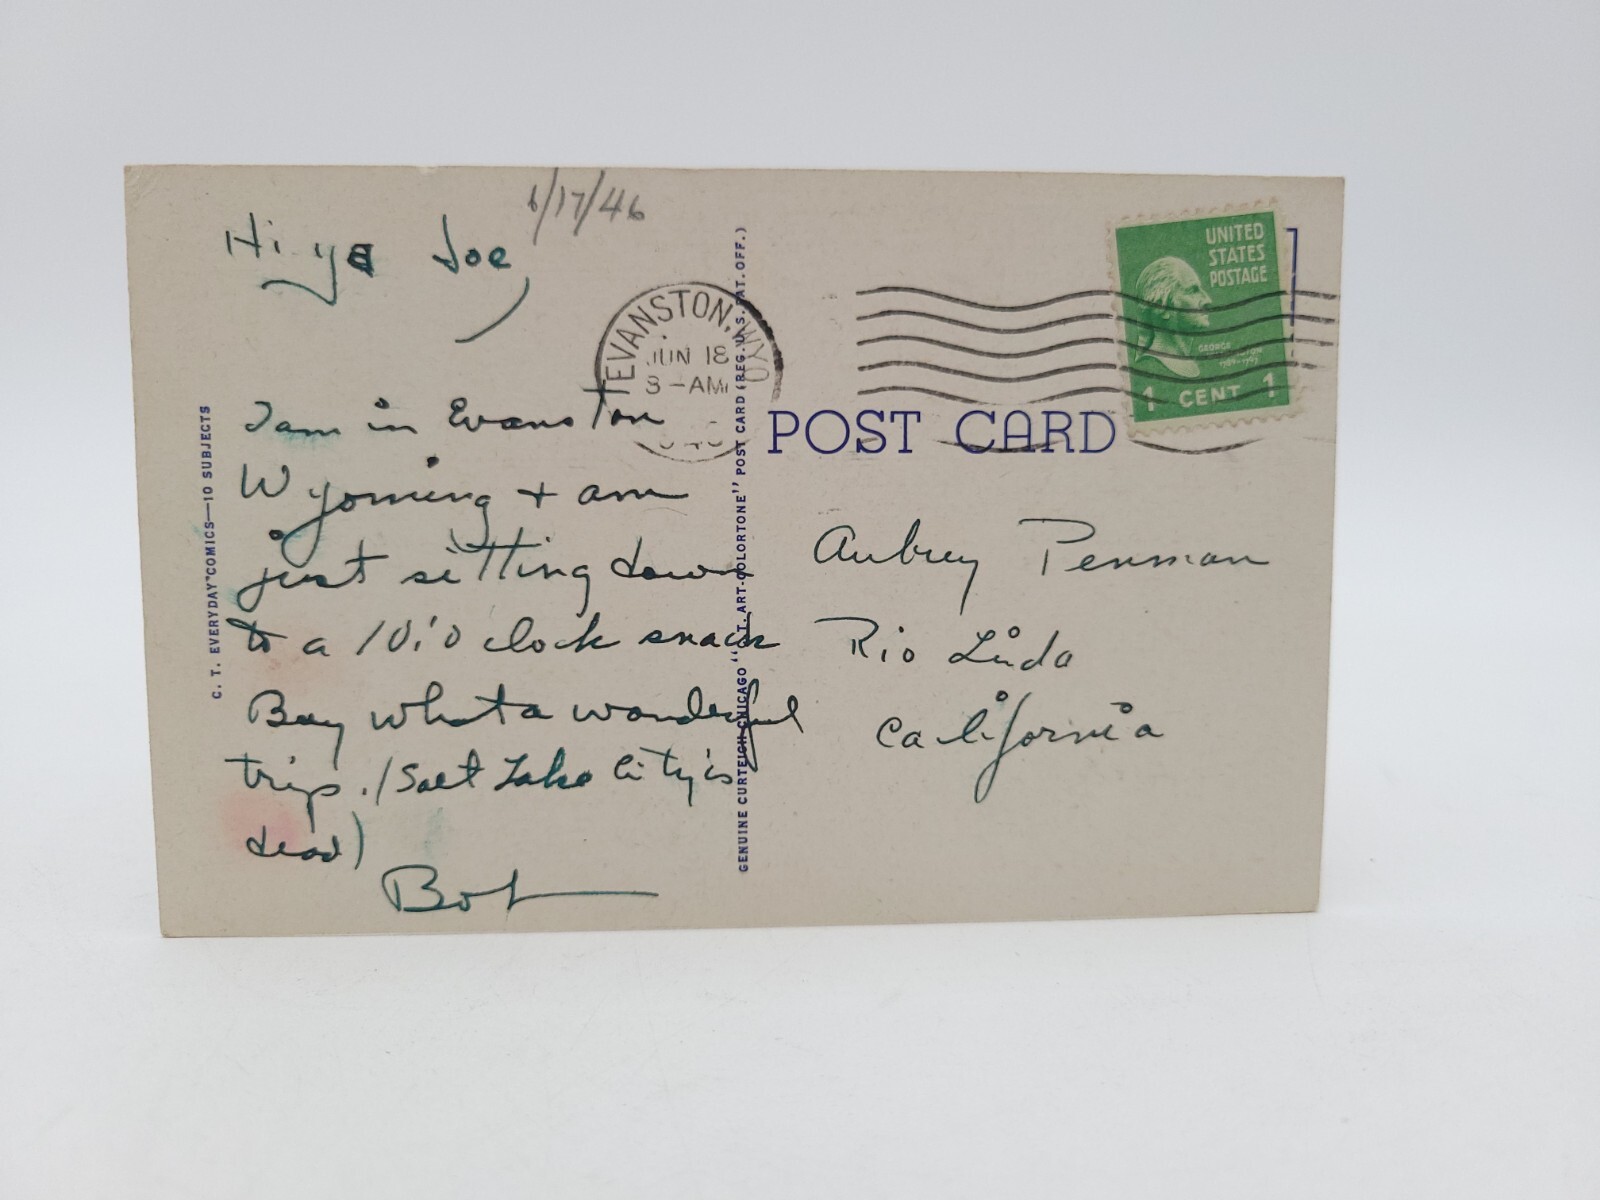 6/17/46
Hi-ya Joe,
I am in Evanston
Wyoming + am
just sitting down
to a 10:'0 clock snack
Boy what a wonderful
trip. (Salt Lake City is
dead)
Bob
C. T. EVERYDAY COMICS—10 SUBJECTS
GENUINE CURTEICH-CHICAGO "C. T. ART-COLORTONE" POST CARD (REG. U. S. PAT. OFF.)
EVANSTON, WYO
JUN 18
8-AM
UNITED
STATES
POSTAGE
GEORGE
WASHINGTON
1 CENT 1
POST CARD
Aubrey Penman
Rio Linda
California